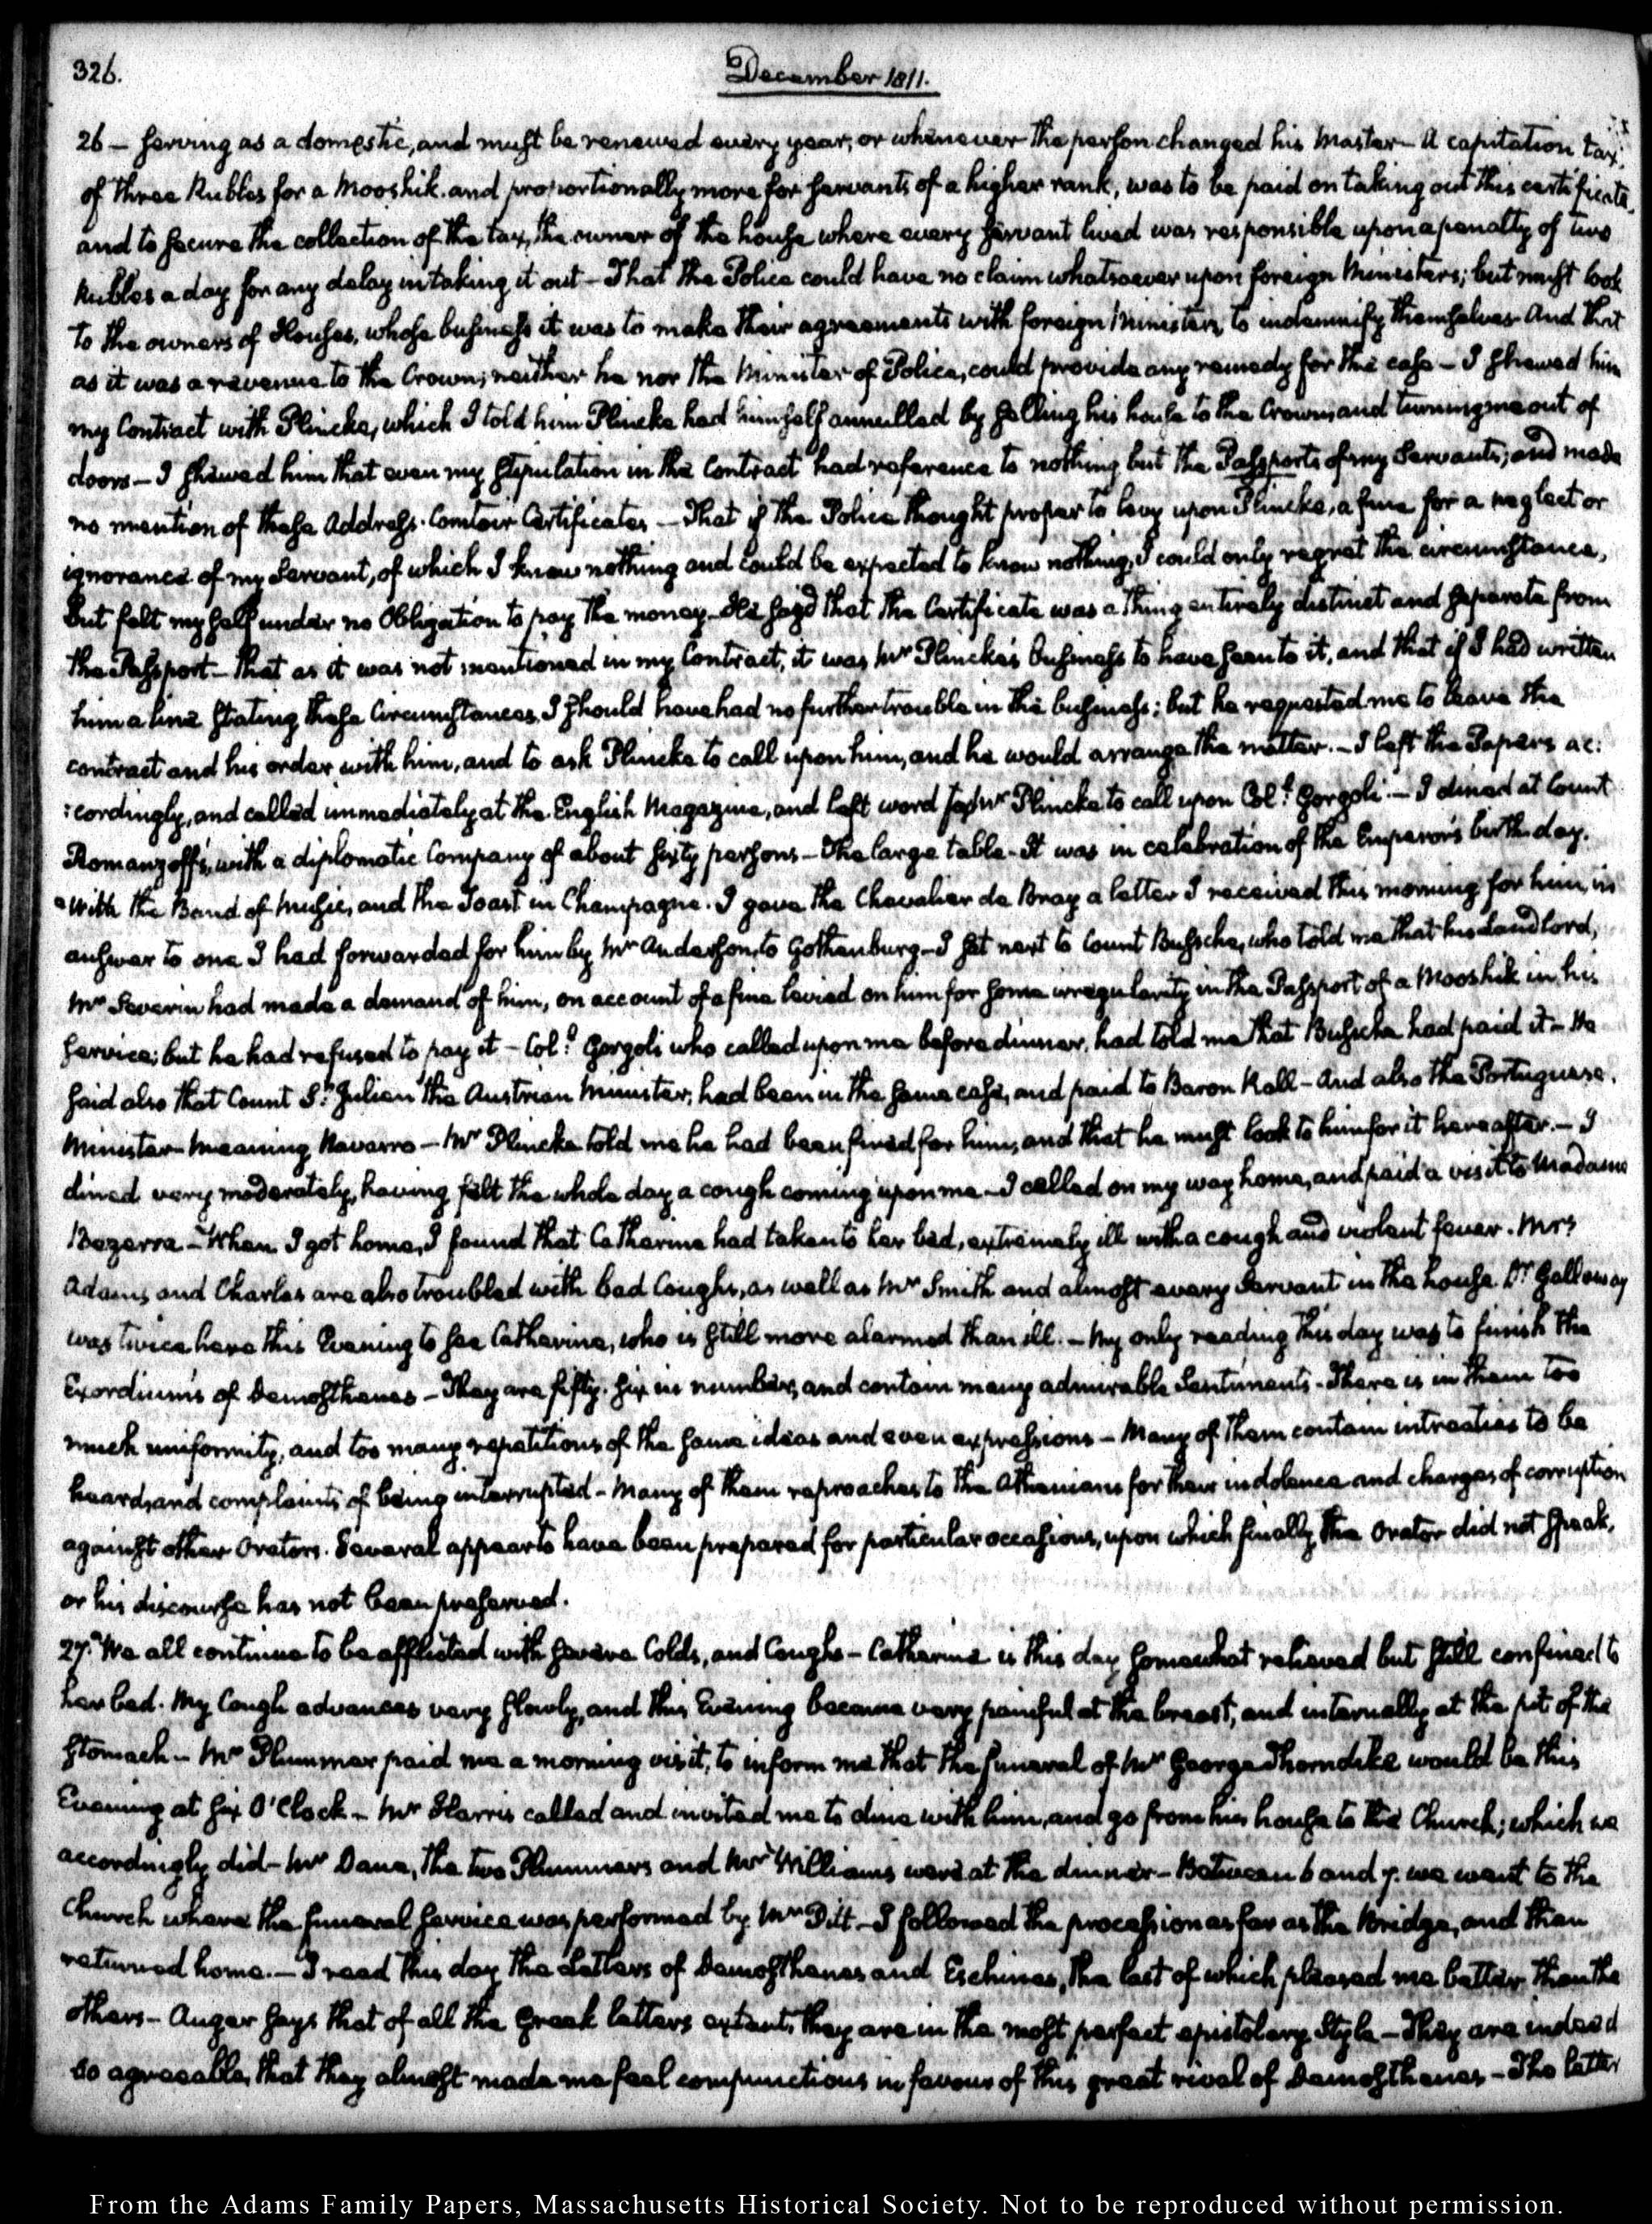 326.
December 1811.
26 — serving as a domestic, and must be renewed every year, or whenever the person changed his Master — A capitation tax,
of three Rubles for a Mooshik. and proportionally more for servants of a higher rank, was to be paid on taking out this certificate.
and to secure the collection of the tax, the owner of the house where every servant lived was responsible upon a penalty of two
Rubles a day for any delay in taking it out — That the Police could have no claim whatsoever upon foreign Ministers; but must look
to the owners of Houses, whose business it was to make their agreements with foreign Ministers, to indemnify themselves. And that
as it was a revenue to the Crown, neither he nor the Minister of Police, could provide any remedy for the case — I shewed him
my Contract with Plincke, which I told him Plincke had himself annulled by selling his house to the Crown, and turning me out of
doors — I shewed him that even my stipulation in the Contract had reference to nothing but the Passports of my Servants; and made
no mention of these Address-Comtoir Certificates — That if the Police thought proper to levy upon Plincke, a fine for a neglect or
ignorance of my Servant, of which I knew nothing and could be expected to know nothing, I could only regret the circumstance,
but felt myself under no Obligation to pay the money. He say'd that the Certificate was a thing entirely distinct and separate from
the Passport — that as it was not mentioned in my Contract, it was Mr Plincke's business to have seen to it, and that if I had written
him a line stating these Circumstances, I should have had no further trouble in the business; but he requested me to leave the
contract and his order with him, and to ask Plincke to call upon him, and he would arrange the matter. — I left the Papers ac:
:cordingly, and called immediately at the English Magazine, and left word for Mr Plincke to call upon Col: Gorgoli. — I dined at Count
Romanzoff's, with a diplomatic Company of about sixty persons — The large table — It was in celebration of the Emperor's birth-day.
With the Band of Music, and the Toast in Champagne. I gave the Chevalier de Bray a letter I received this morning for him, in
answer to one I had forwarded for him by Mr Anderson, to Gothenburg — I sat next to Count Bussche, who told me that his Landlord,
Mr Severin had made a demand of him, on account of a fine levied on him for some irregularity in the Passport of a Mooshik in his
service; but he had refused to pay it — Col: Gorgoli who called upon me before dinner, had told me that Bussche had paid it — He
said also that Count St Julien the Austrian Minister, had been in the same case, and paid to Baron Rall — And also the Portuguese.
Minister — meaning Navarro — Mr Plincke told me he had been fined for him, and that he must look to him for it hereafter. — I
dined very moderately, having felt the whole day a cough coming upon me — I called on my way home, and paid a visit to Madame
Bezerra — When I got home, I found that Catharine had taken to her bed, extremely ill with a cough and violent fever. Mrs
Adams, and Charles are also troubled with bad Coughs, as well as Mr Smith and almost every Servant in the house. Dr Galloway
was twice here this Evening to see Catharine, who is still more alarmed than ill. — My only reading this day was to finish the
Exordiums of Demosthenes — They are fifty-six in number, and contain many admirable Sentiments — There is in them too
much uniformity, and too many repetitions of the same ideas and even expressions — Many of them contain intreaties to be
heard, and complaints of being interrupted — Many of them reproaches to the Athenians for their indolence and charges of corruption
against other Orators. Several appear to have been prepared for particular occasions, upon which finally the Orator did not speak,
or his discourse has not been preserved.
27. We all continue to be afflicted with severe Colds, and Coughs — Catharine is this day somewhat relieved but still confined to
her bed. My Cough advances very slowly, and this Evening became very painful at the breast, and internally at the pit of the
stomach — Mr Plummer paid me a morning visit, to inform me that the funeral of Mr George Thorndike would be this
Evening at six O'Clock — Mr Harris called and invited me to dine with him, and go from his house to the Church; which we
accordingly did — Mr Dana, the two Plummers and Mr Williams were at the dinner — Between 6 and 7. we went to the
Church where the funeral service was performed by Mr Pitt — I followed the procession as far as the Bridge, and then
returned home. — I read this day the Letters of Demosthenes and Eschines, the last of which pleased me better than the
others — Auger says that of all the Greek letters extant, they are in the most perfect epistolary Style — They are indeed
so agreeable, that they almost made me feel compunctions in favour of this great rival of Demosthenes — The latter
From the Adams Family Papers, Massachusetts Historical Society. Not to be reproduced without permission.